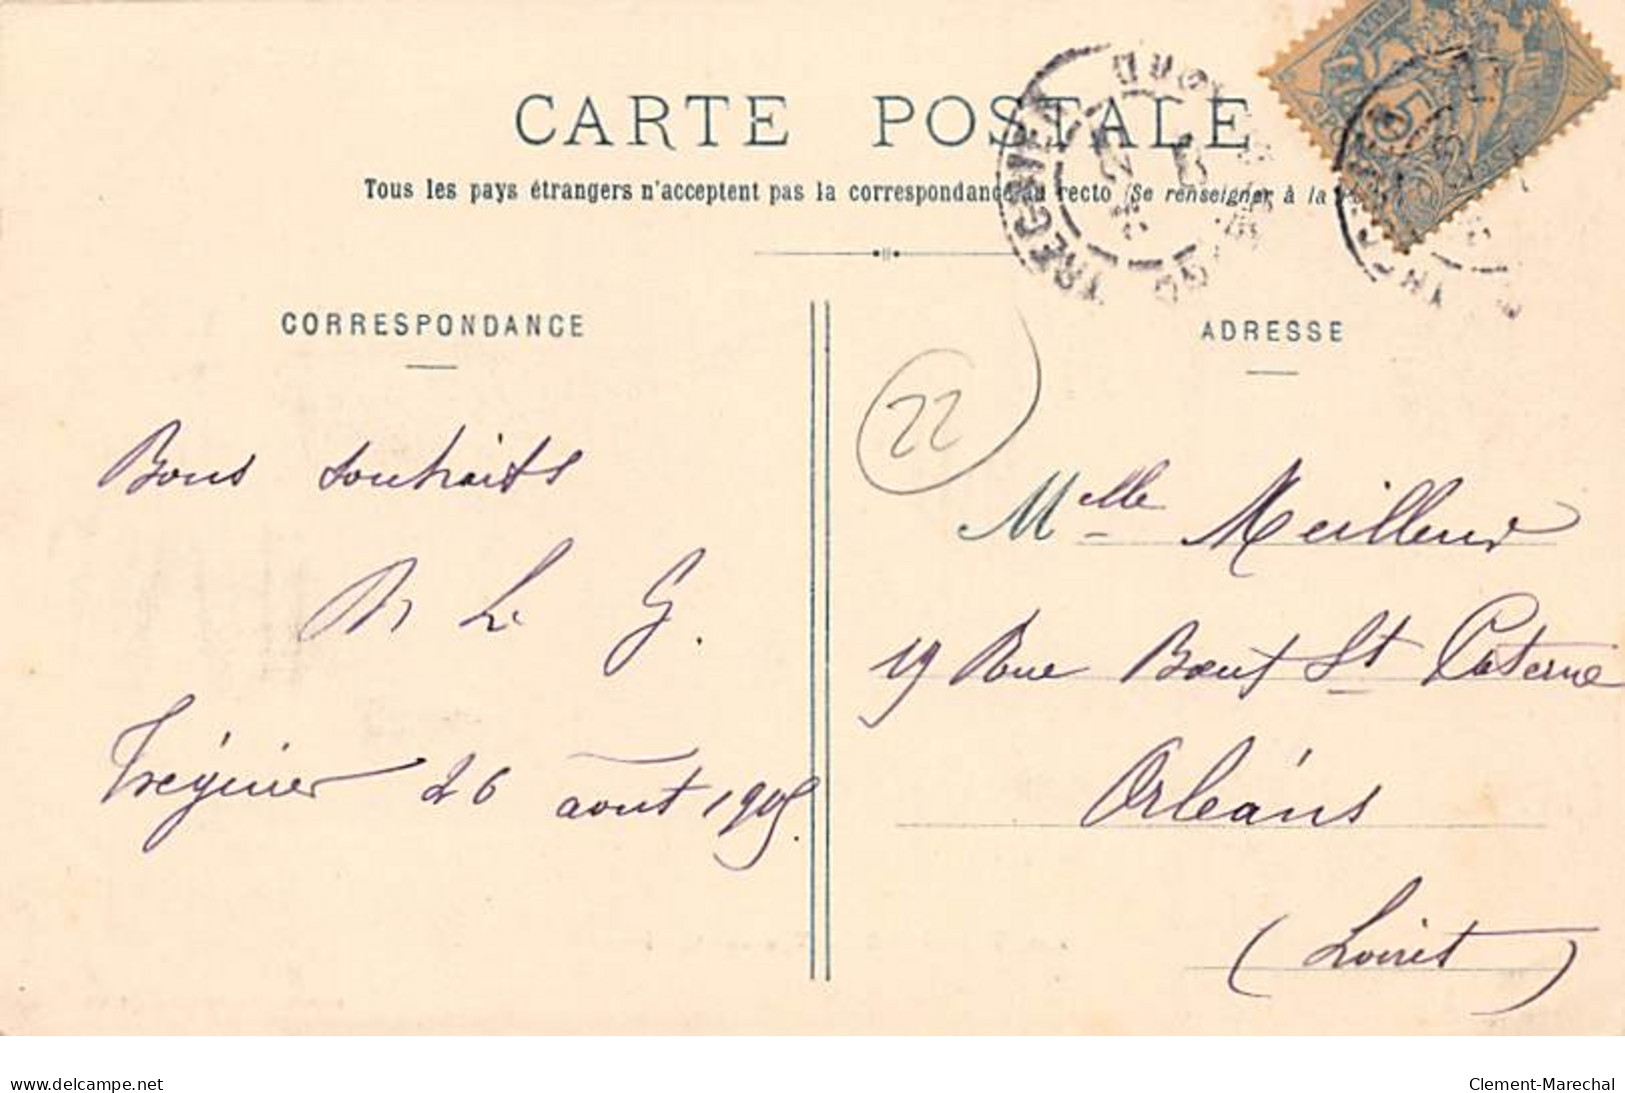 CARTE POSTALE
Tous les pays étrangers n'acceptent pas la correspondance au recto (Se renseigner à la
TREGUIER
5
CORRESPONDANCE
ADRESSE
22
Bons souhaits
M L G.
Tréguier 26 août 1905.
Melle Meilleur
19 Rue Bout St Caterne
Orléans
(Loiret)
delcampe.net
Clement-Marechal